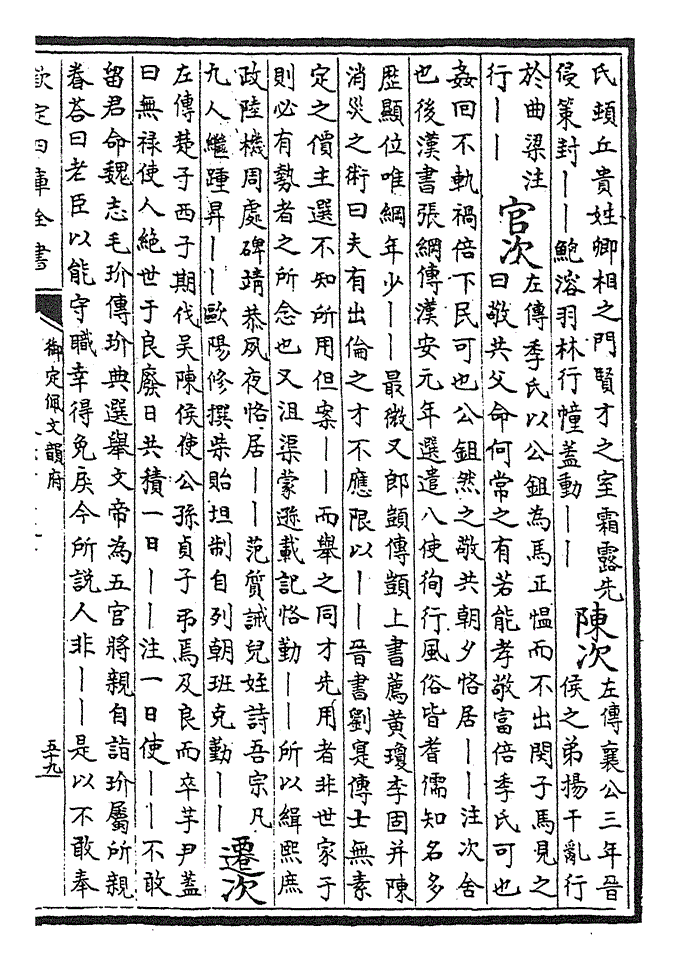 氏頓丘貴姓卿相之門賢才之室霜露先
侵策封——鮑溶羽林行幢蓋動——
陳次
左傳襄公三年晉
侯之弟揚干亂行
於曲梁注
行——
官次
左傳季氏以公鉏為馬正愠而不出閔子馬見之
曰敬共父命何常之有若能孝敬富倍季氏可也
姦回不軌禍倍下民可也公鉏然之敬共朝夕恪居——注次舍
也後漢書張綱傳漢安元年選遣八使徇行風俗皆耆儒知名多
歴顯位唯綱年少——最微又郎顗傳顗上書薦黄瓊李固并陳
消災之術曰夫有出倫之才不應限以——晉書劉寔傳士無素
定之價主選不知所用但案——而舉之同才先用者非世家子
則必有勢者之所念也又沮渠蒙遜載記恪勤——所以緝熙庶
政陸機周處碑靖恭夙夜恪居——范質誡兒姪詩吾宗凡
九人繼踵昇——歐陽修撰柴貽坦制自列朝班克勤——
遷次
左傳楚子西子期伐吳陳侯使公孫貞子弔焉及良而卒芋尹蓋
曰無禄使人絶世于良廢日共積一日——注一日使——不敢
留君命魏志毛玠傳玠典選舉文帝為五官將親自詣玠屬所親
眷荅曰老臣以能守職幸得免戾今所説人非——是以不敢奉
欽定四庫全書
御定佩文韻府
五十九